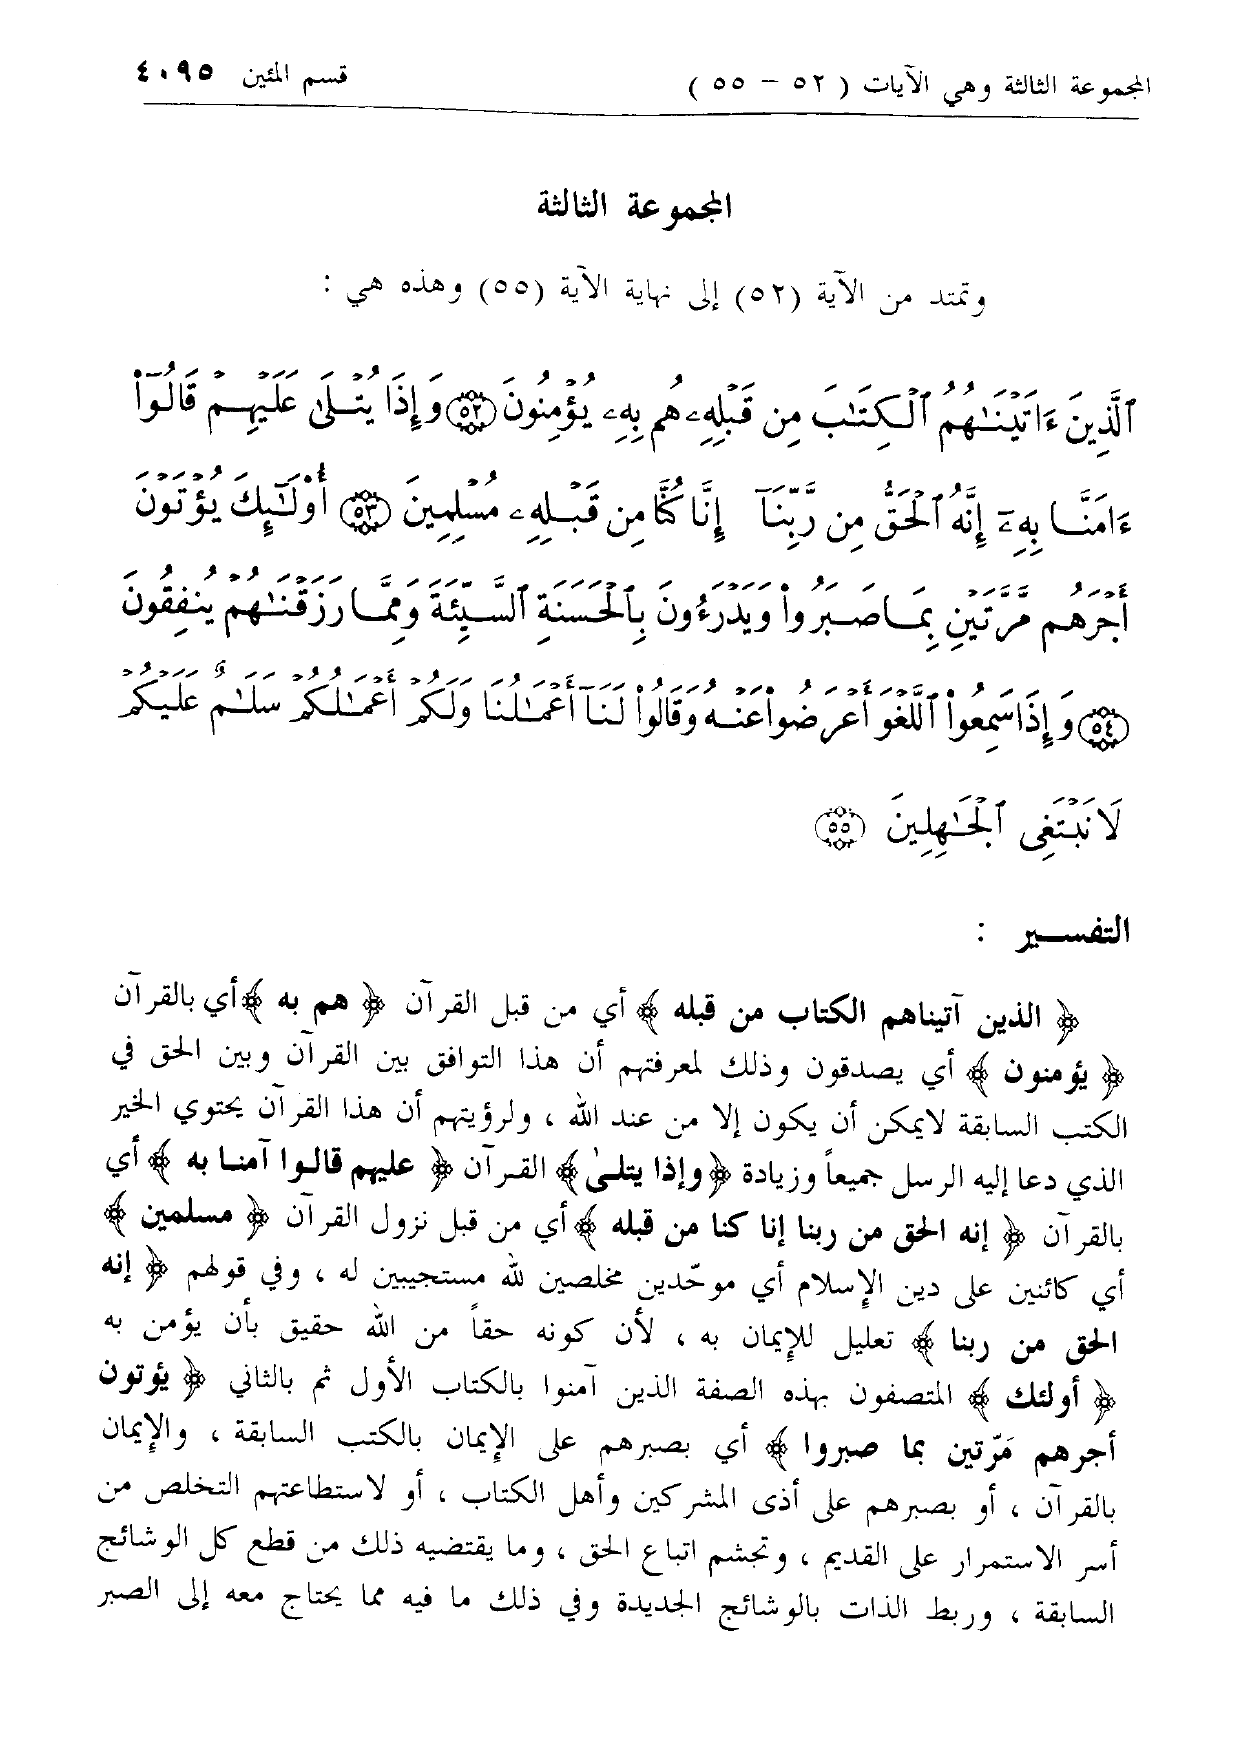 المجموعة الثالثة وهي الآيات ( ٥٢ – ٥٥ )
قسم المئين ٤٠٩٥
المجموعة الثالثة
وتمتد من الآية (٥٢) إلى نهاية الآية (٥٥) وهذه هي :
ٱلَّذِينَ ءَاتَيْنَٰهُمُ ٱلْكِتَٰبَ مِن قَبْلِهِۦ هُم بِهِۦ يُؤْمِنُونَ ٥٢ وَإِذَا يُتْلَىٰ عَلَيْهِمْ قَالُوٓا۟
ءَامَنَّا بِهِۦٓ إِنَّهُ ٱلْحَقُّ مِن رَّبِّنَآ إِنَّا كُنَّا مِن قَبْلِهِۦ مُسْلِمِينَ ٥٣ أُو۟لَٰٓئِكَ يُؤْتَوْنَ
أَجْرَهُم مَّرَّتَيْنِ بِمَا صَبَرُوا۟ وَيَدْرَءُونَ بِٱلْحَسَنَةِ ٱلسَّيِّئَةَ وَمِمَّا رَزَقْنَٰهُمْ يُنفِقُونَ
٥٤ وَإِذَا سَمِعُوا۟ ٱللَّغْوَ أَعْرَضُوا۟ عَنْهُ وَقَالُوا۟ لَنَآ أَعْمَٰلُنَا وَلَكُمْ أَعْمَٰلُكُمْ سَلَٰمٌ عَلَيْكُمْ
لَا نَبْتَغِى ٱلْجَٰهِلِينَ ٥٥
التفسير :
﴿ الذين آتيناهم الكتاب من قبله ﴾ أي من قبل القرآن ﴿ هم به ﴾ أي بالقرآن
﴿ يؤمنون ﴾ أي يصدقون وذلك لمعرفتهم أن هذا التوافق بين القرآن وبين الحق في
الكتب السابقة لايمكن أن يكون إلا من عند الله ، ولرؤيتهم أن هذا القرآن يحتوي الخير
الذي دعا إليه الرسل جميعاً وزيادة ﴿ وإذا يتلىٰ ﴾ القرآن ﴿ عليهم قالوا آمنا به ﴾ أي
بالقرآن ﴿ إنه الحق من ربنا إنا كنا من قبله ﴾ أي من قبل نزول القرآن ﴿ مسلمين ﴾
أي كائنين على دين الإسلام أي موحّدين مخلصين لله مستجيبين له ، وفي قولهم ﴿ إنه
الحق من ربنا ﴾ تعليل للإيمان به ، لأن كونه حقاً من الله حقيق بأن يؤمن به
﴿ أولئك ﴾ المتصفون بهذه الصفة الذين آمنوا بالكتاب الأول ثم بالثاني ﴿ يؤتون
أجرهم مَرّتين بما صبروا ﴾ أي بصبرهم على الإيمان بالكتب السابقة ، والإيمان
بالقرآن ، أو بصبرهم على أذى المشركين وأهل الكتاب ، أو لاستطاعتهم التخلص من
أسر الاستمرار على القديم ، وتجشم اتباع الحق ، وما يقتضيه ذلك من قطع كل الوشائج
السابقة ، وربط الذات بالوشائج الجديدة وفي ذلك ما فيه مما يحتاج معه إلى الصبر